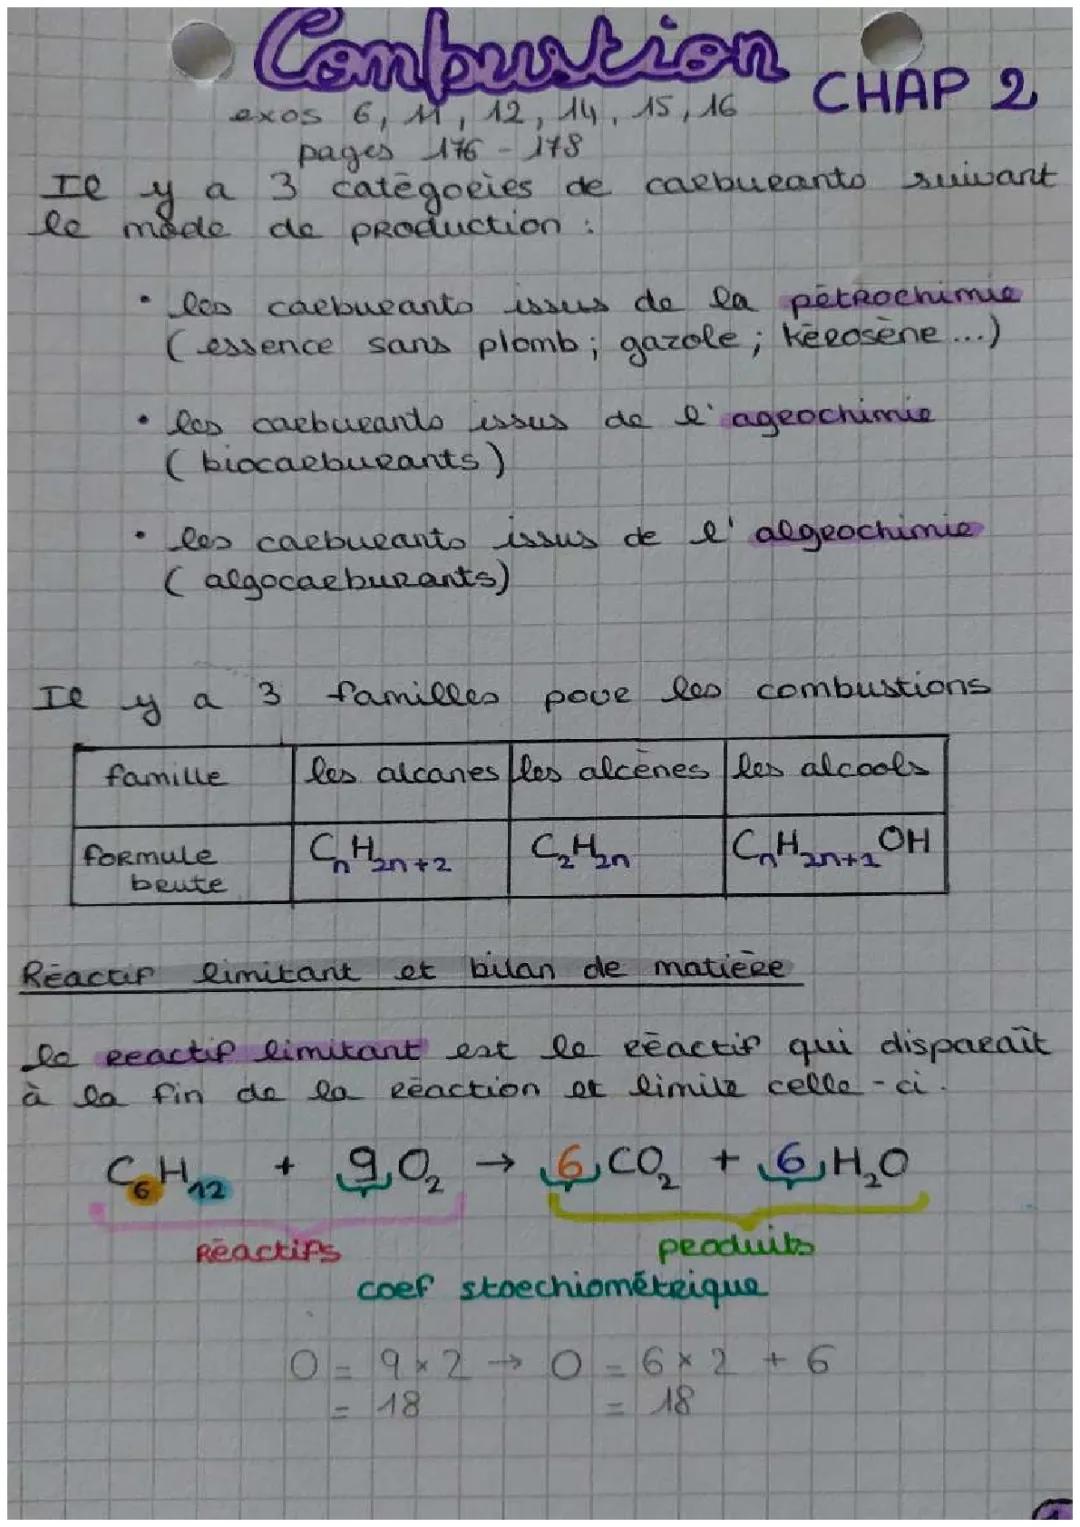 Combustion
CHAP 2
exos 6, 11, 12, 14, 15, 16
pages 176 - 178
Il y a 3 catégories de carburants suivant
le mode de production :
• les carburants issus de la pétrochimie
(essence sans plomb; gazole; kérosène...)
• les carburants issus de l'agrochimie
(biocarburants)
• les carburants issus de l'algrochimie
(algocarburants)
Il y a 3 familles pour les combustions
famille les alcanes les alcènes les alcools
formule brute CₙH₂ₙ₊₂ C₂H₂ₙ CₙH₂ₙ₊₁OH
Réactif limitant et bilan de matière
le reactif limitant est le réactif qui disparaît
à la fin de la réaction et limite celle-ci.
C₆H₁₂ + 9O₂ → 6CO₂ + 6H₂O
Réactifs produits
coef stoechiométrique
O = 9 × 2 → O = 6 × 2 + 6
= 18 = 18